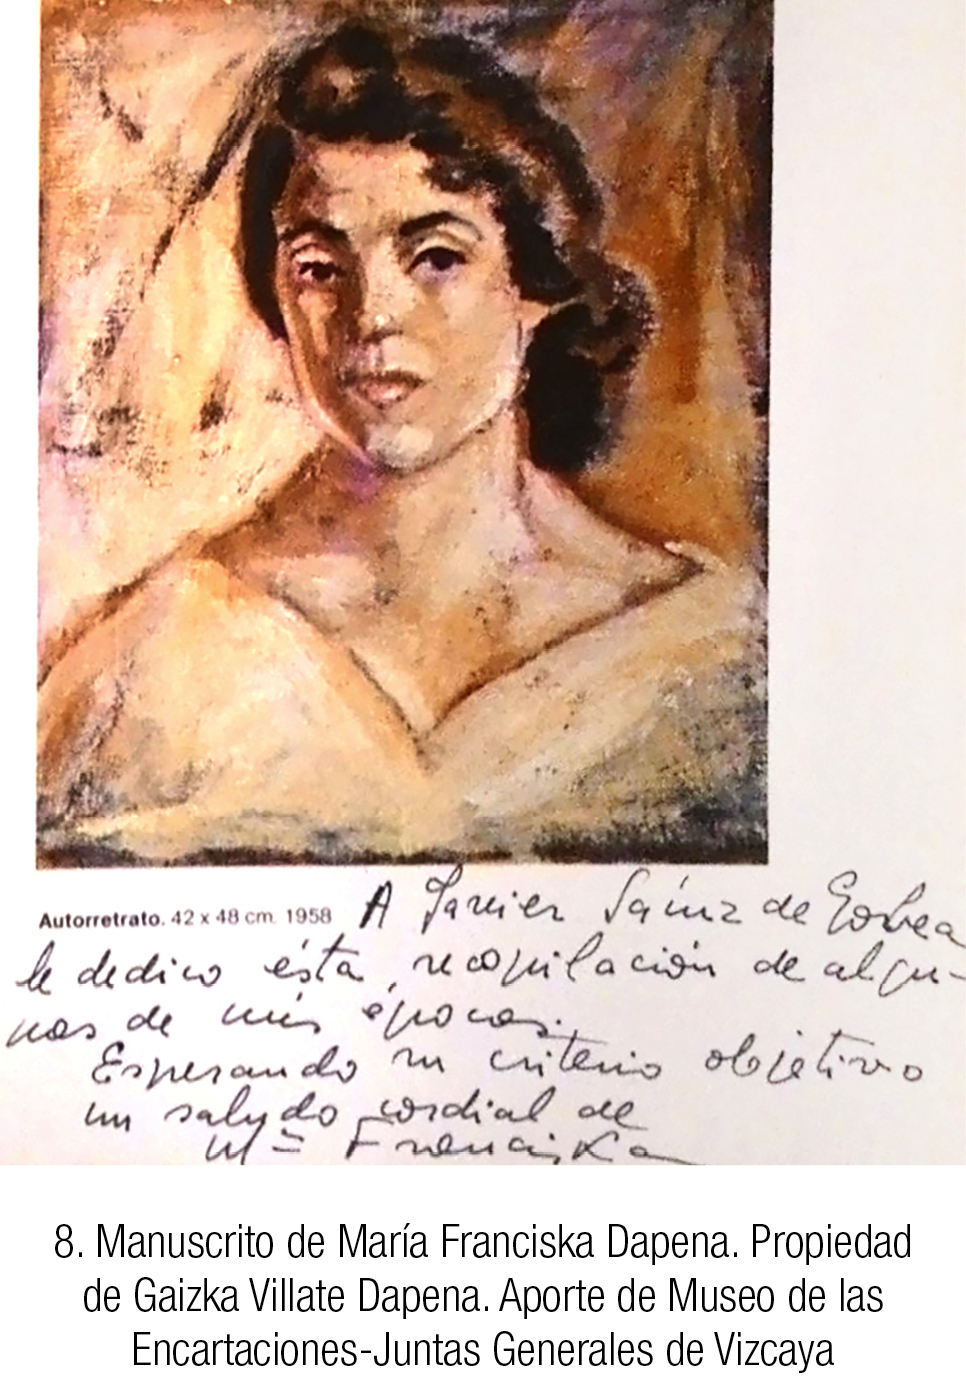 Autorretrato. 42 x 48 cm. 1958
A Javier Saínz de Gorbea
le dedico ésta, recopilación de algu-
nas de mis épocas.
Esperando su criterio objetivo
un saludo cordial de
Mª Franciska
8. Manuscrito de María Franciska Dapena. Propiedad
de Gaizka Villate Dapena. Aporte de Museo de las
Encartaciones-Juntas Generales de Vizcaya